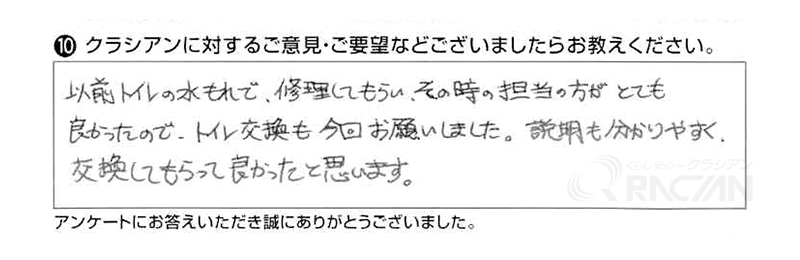 ⑩ クラシアンに対するご意見・ご要望などございましたらお教えください。
以前トイレの水もれで、修理してもらい、その時の担当の方がとても
良かったので、トイレ交換も今回お願いしました。説明も分かりやすく、
交換してもらって良かったと思います。
くらし安心クラシアン
QRACIAN
アンケートにお答えいただき誠にありがとうございました。